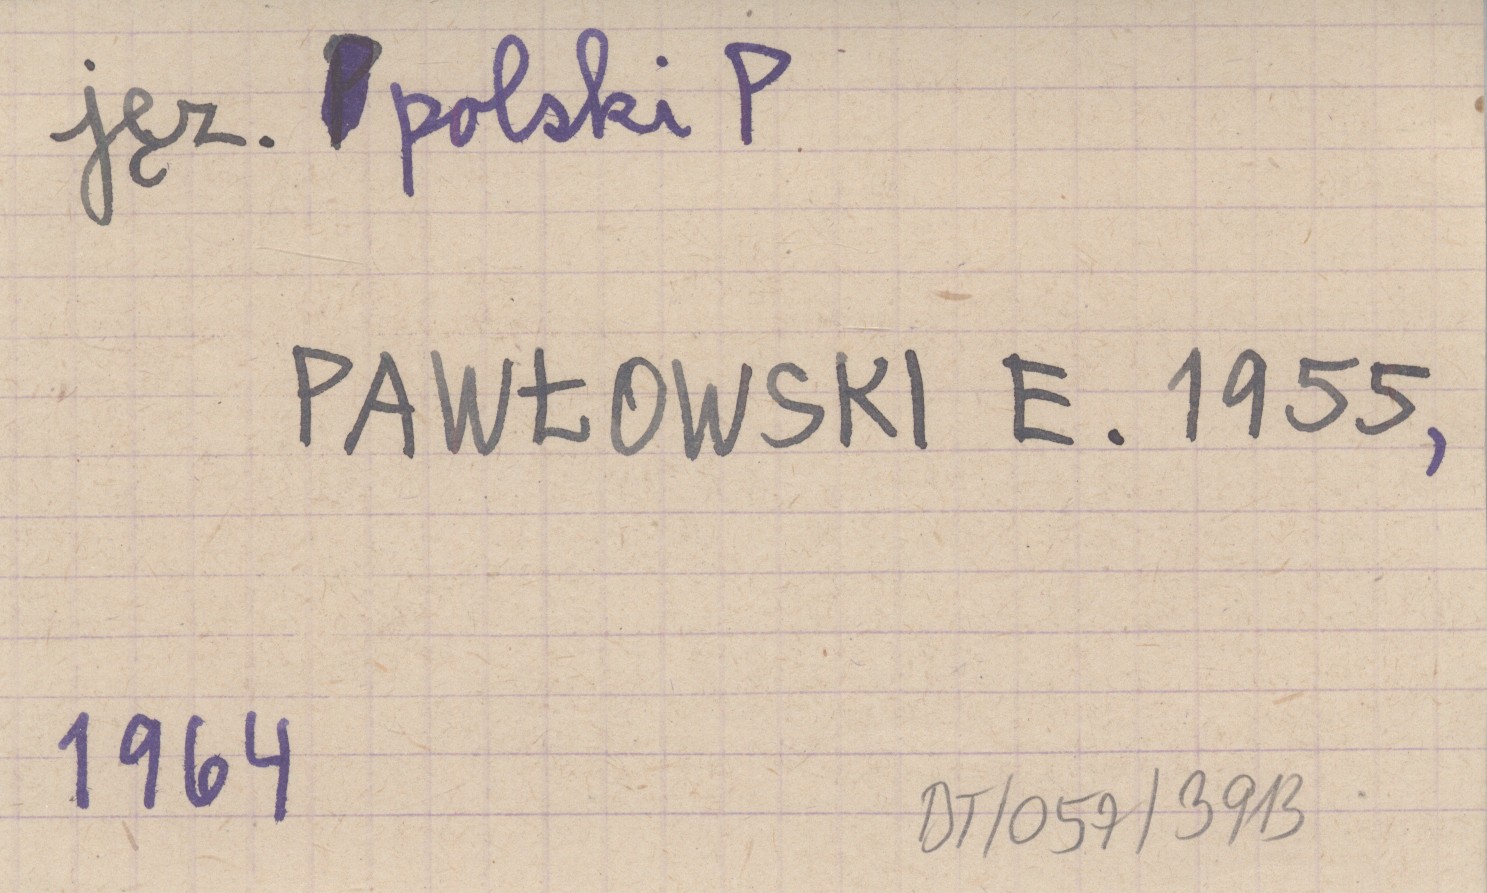 jęz. polski P
PAWŁOWSKI E. 1955,
1964
DT/057/3913